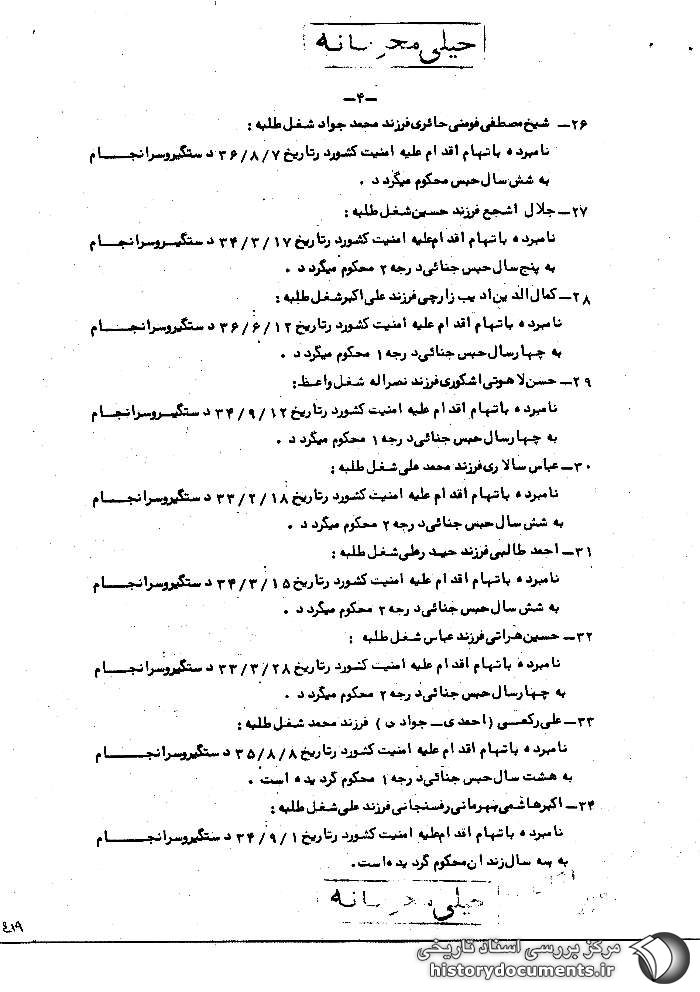 خیلی محرمانه
-۴-
۲۶- شیخ مصطفی فومنی حائری فرزند محمد جواد شغل طلبه :
نامبرده باتهام اقدام علیه امنیت کشور در تاریخ ۳۶/۸/۷ دستگیر و سرانجام
به شش سال حبس محکوم میگردد .
۲۷- جلال اشجع فرزند حسین شغل طلبه :
نامبرده باتهام اقدام علیه امنیت کشور در تاریخ ۳۴/۳/۱۷ دستگیر و سرانجام
به پنج سال حبس جنائی درجه ۲ محکوم میگردد .
۲۸- کمال الدین ادیب زارچی فرزند علی اکبر شغل طلبه :
نامبرده باتهام اقدام علیه امنیت کشور در تاریخ ۳۶/۶/۱۲ دستگیر و سرانجام
به چهار سال حبس جنائی درجه ۱ محکوم میگردد .
۲۹- حسن لاهوتی اشکوری فرزند نصراله شغل واعظ :
نامبرده باتهام اقدام علیه امنیت کشور در تاریخ ۳۴/۹/۱۲ دستگیر و سرانجام
به چهار سال حبس جنائی درجه ۱ محکوم میگردد .
۳۰- عباس سالاری فرزند محمد علی شغل طلبه :
نامبرده باتهام اقدام علیه امنیت کشور در تاریخ ۳۳/۲/۱۸ دستگیر و سرانجام
به شش سال حبس جنائی درجه ۲ محکوم میگردد .
۳۱- احمد طالبی فرزند حیدرعلی شغل طلبه :
نامبرده باتهام اقدام علیه امنیت کشور در تاریخ ۳۴/۳/۱۵ دستگیر و سرانجام
به شش سال حبس جنائی درجه ۲ محکوم میگردد .
۳۲- حسین هراتی فرزند عباس شغل طلبه :
نامبرده باتهام اقدام علیه امنیت کشور در تاریخ ۳۳/۳/۲۸ دستگیر و سرانجام
به چهار سال حبس جنائی درجه ۲ محکوم میگردد .
۳۳- علی رکعی (احمدی - جوادی) فرزند محمد شغل طلبه :
نامبرده باتهام اقدام علیه امنیت کشور در تاریخ ۳۵/۸/۸ دستگیر و سرانجام
به هشت سال حبس جنائی درجه ۱ محکوم گردیده است .
۳۴- اکبر هاشمی بهرمانی رفسنجانی فرزند علی شغل طلبه :
نامبرده باتهام اقدام علیه امنیت کشور در تاریخ ۳۴/۹/۱ دستگیر و سرانجام
به سه سال زندان محکوم گردیده است .
خیلی محرمانه
۴۱۹
مرکز بررسی اسناد تاریخی
historydocuments.ir